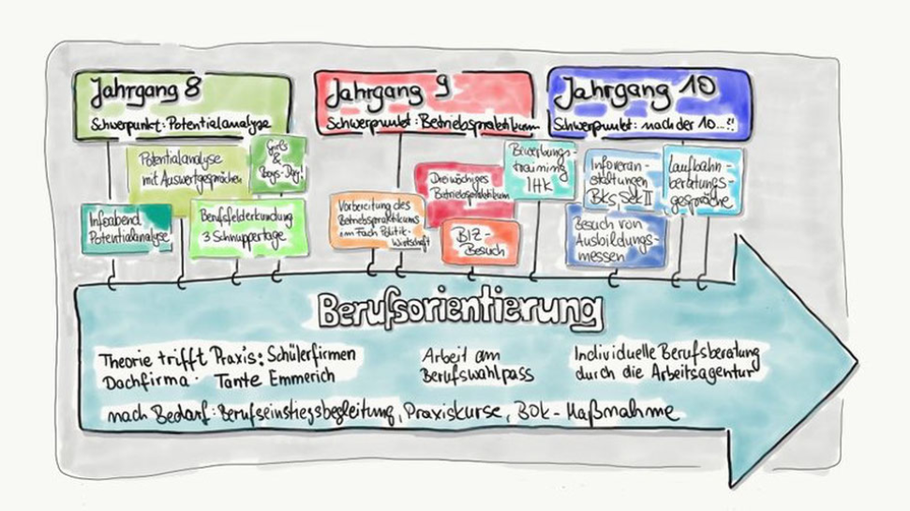 Jahrgang 8
Schwerpunkt: Potentialanalyse
Potentialanalyse
mit Auswertgesprächen
Girls
&
Boys-Day!
Infoabend
Potentialanalyse
Berufsfelderkundung
3 Schnuppertage
Jahrgang 9
Schwerpunkt: Betriebspraktikum
Vorbereitung des
Betriebspraktikums
im Fach Politik-
Wirtschaft
Dreiwöchiges
Betriebspraktikum
BIZ-
Besuch
Bewerbungs-
training
IHK
Jahrgang 10
Schwerpunkt: nach der 10...!!
Infoveran-
staltungen
BKs Sek II
Laufbahn-
beratungs-
gespräche
Besuch von
Ausbildungs-
messen
Berufsorientierung
Theorie trifft Praxis: Schülerfirmen
Dachfirma: Tante Emmerich
Arbeit am
Berufswahlpass
Individuelle Berufsberatung
durch die Arbeitsagentur
nach Bedarf: Berufseinstiegsbegleitung, Praxiskurse, BOK-Maßnahme